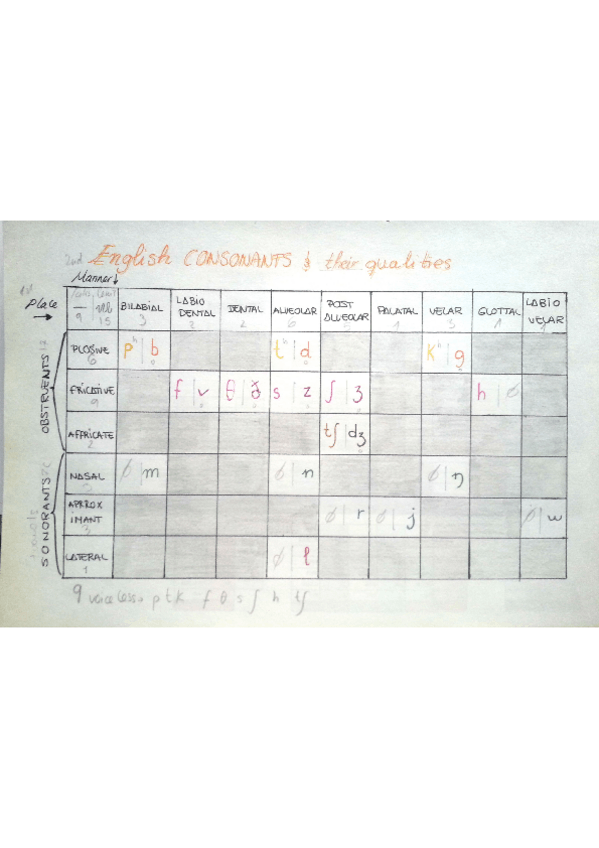 2nd English CONSONANTS & their qualities
Manner↓
1st Place →
9 | 15 BILABIAL 3 LABIO DENTAL 2 DENTAL 2 ALVEOLAR 6 POST ALVEOLAR PALATAL 1 VELAR 3 GLOTTAL 1 LABIO VELAR
OBSTRUENTS
PLOSIVE 6 pʰ | b tʰ | d kʰ | g
FRICATIVE 9 f | v θ | ð s | z ʃ | ʒ h | ∅
AFFRICATE 2 tʃ | dʒ
SONORANTS
NASAL ∅ | m ∅ | n ∅ | ŋ
APPROX IMANT 3 ∅ | r ∅ | j ∅ | w
LATERAL 1 ∅ | l
9 voiceless p t k f θ s ʃ h tʃ